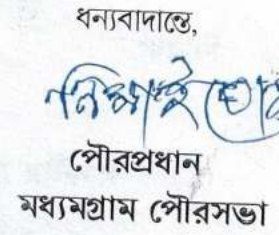 ধন্যবাদান্তে,
নিমাই ঘোষ
পৌরপ্রধান
মধ্যমগ্রাম পৌরসভা